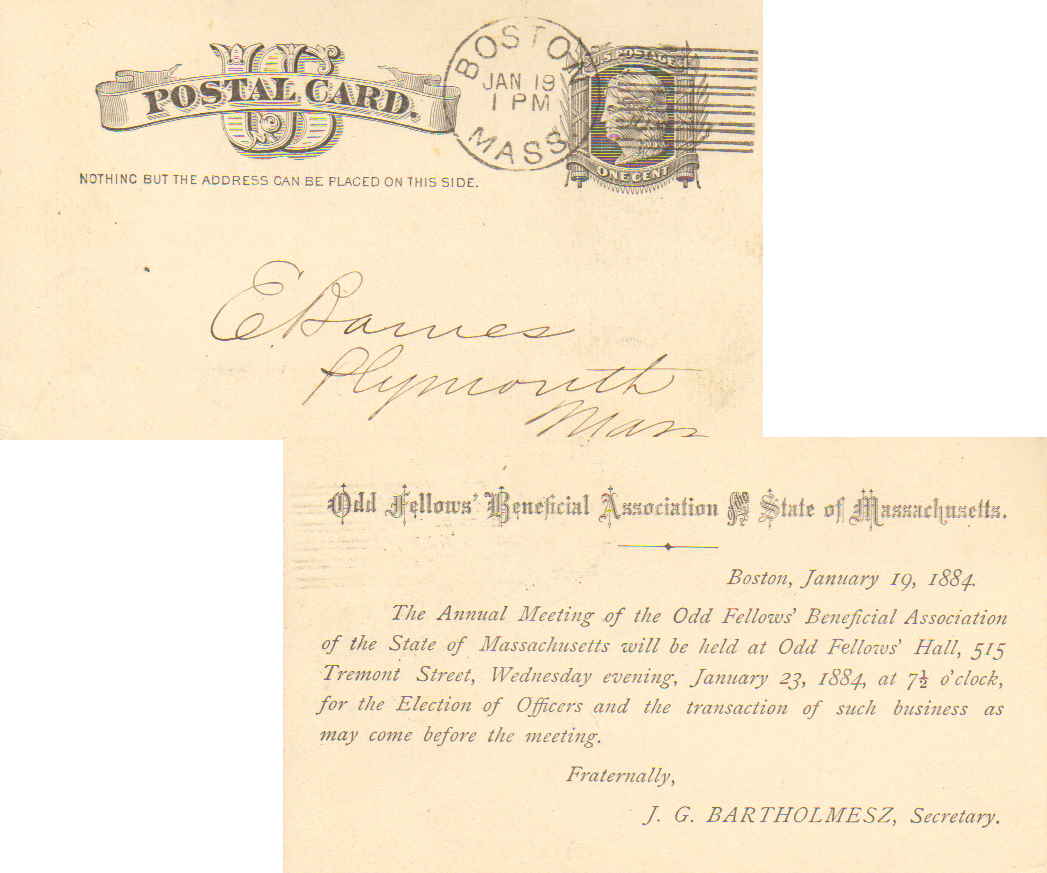 US
POSTAL CARD.
NOTHING BUT THE ADDRESS CAN BE PLACED ON THIS SIDE.
BOSTON
JAN 19
1 PM
MASS
U.S. POSTAGE
ONE CENT
E. Barnes
Plymouth
Mass
Odd Fellows' Beneficial Association of the State of Massachusetts.
Boston, January 19, 1884.
The Annual Meeting of the Odd Fellows' Beneficial Association
of the State of Massachusetts will be held at Odd Fellows' Hall, 515
Tremont Street, Wednesday evening, January 23, 1884, at 7½ o'clock,
for the Election of Officers and the transaction of such business as
may come before the meeting.
Fraternally,
J. G. BARTHOLMESZ, Secretary.